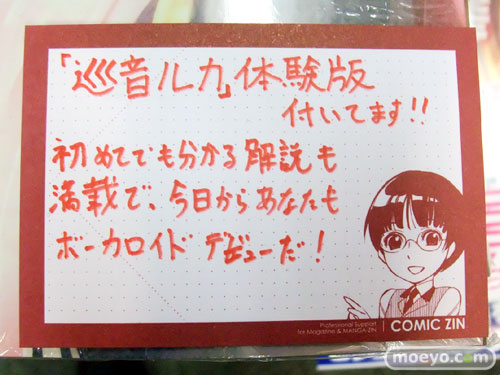 「巡音ルカ」体験版
付いてます!!
初めてでも分かる解説も
満載で、今日からあなたも
ボーカロイドデビューだ!
Professional Support
for Magazine & MANGA-ZIN
COMIC ZIN
moeyo.com